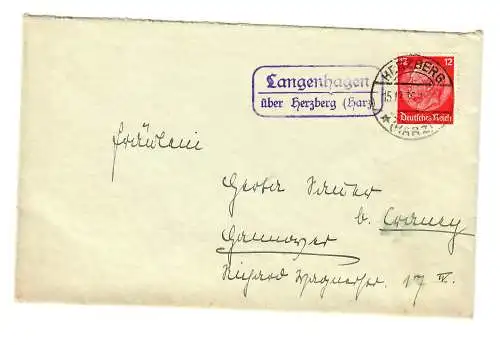 Langenhagen
über Herzberg (Harz)
HERZBERG
(HARZ)
12 12
Deutsches Reich
Fräulein
Gerta Sauer
b. Craney
Hannover
Richard Wagnerstr. 17 IV.